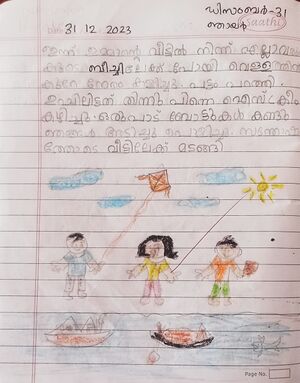 ഡിസംബർ-31
31.12.2023
ഞായർ
saathi
ഇന്ന് ഉമ്മാന്റെ വീട്ടിൽ നിന്ന് എല്ലാവരും
ബീച്ചിലേക്ക് പോയി വെള്ളത്തിൽ
കുറേ നേരം കളിച്ചു പട്ടം പറത്തി
ഉപ്പിലിട്ടത് തിന്നു പിന്നെ ഐസ്ക്രീം
കഴിച്ചു. ഒരുപാട് ബോട്ടുകൾ കണ്ടു
ഞങ്ങൾ അടിച്ചു പൊളിച്ചു. സന്തോഷ
ത്തോടെ വീട്ടിലേക്ക് മടങ്ങി
Page No.